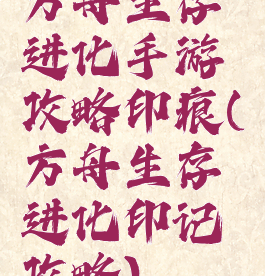 方舟生存
进化手游
攻略印痕(
方舟生存
进化印记
攻略)